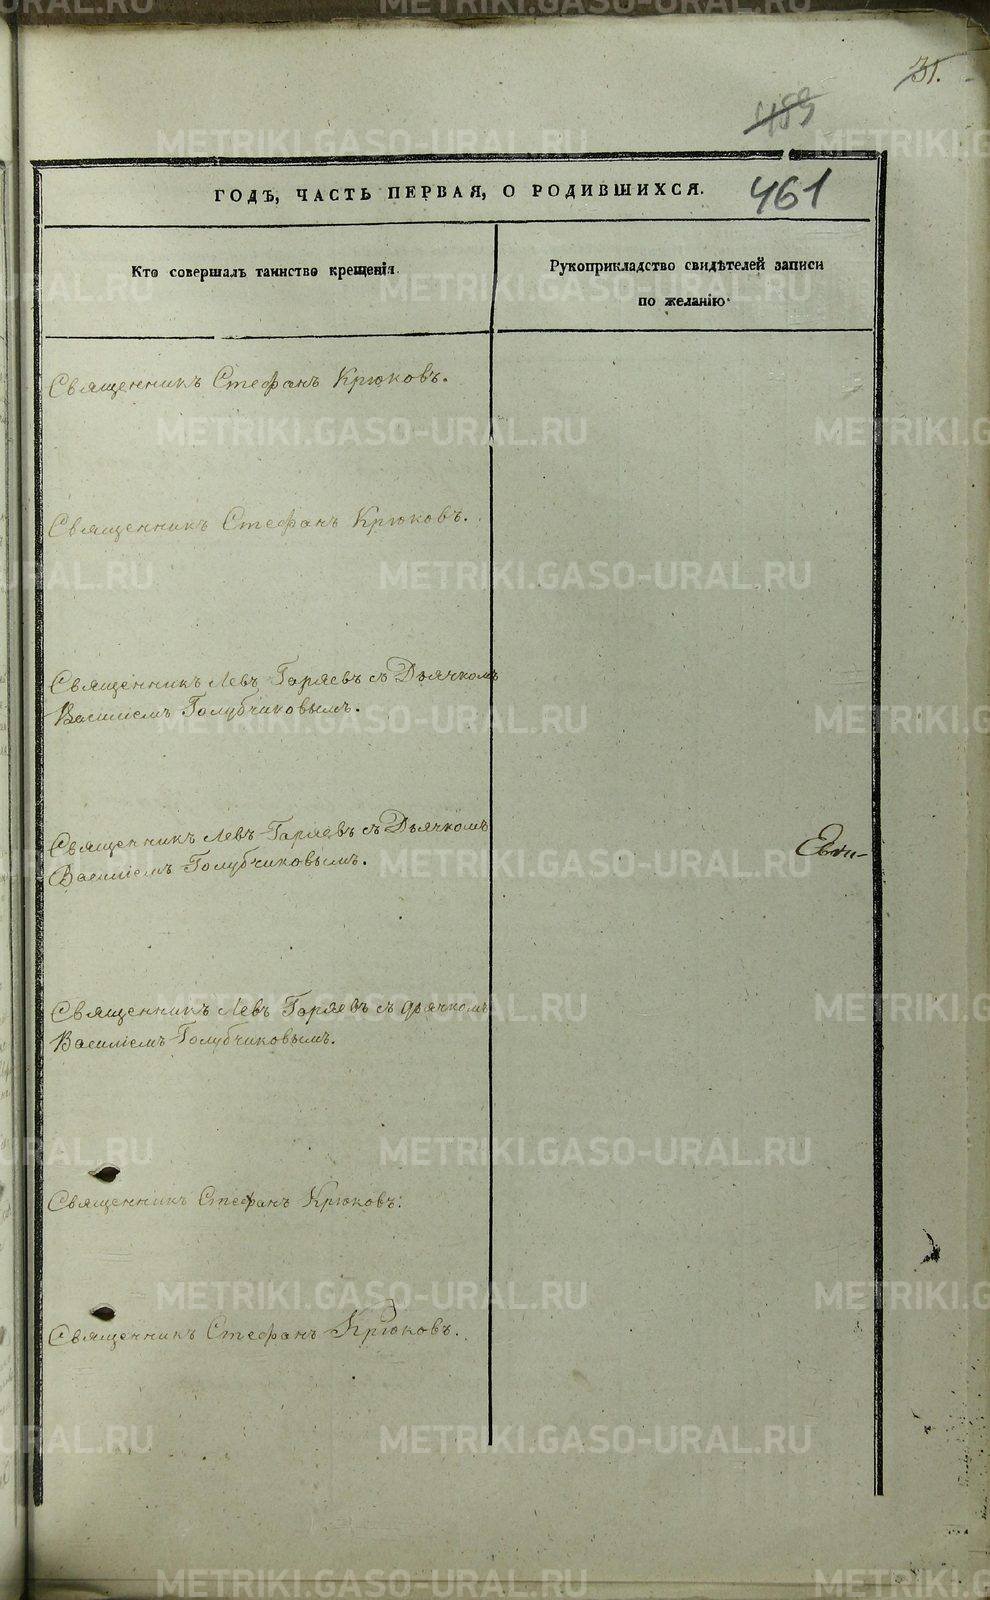 31.
459
461
ГОДЪ, ЧАСТЬ ПЕРВАЯ, О РОДИВШИХСЯ.
Кто совершалъ таинство крещенія.
Рукоприкладство свидѣтелей записи
по желанію.
Священникъ Стефанъ Крюковъ.
Священникъ Стефанъ Крюковъ.
Священникъ Левъ Гаряевъ съ Дьячкомъ
Василіемъ Голубчиковымъ.
Священникъ Левъ Гаряевъ съ Дьячкомъ
Василіемъ Голубчиковымъ.
Священникъ Левъ Гаряевъ съ дьячкомъ
Василіемъ Голубчиковымъ.
Священникъ Стефанъ Крюковъ.
Священникъ Стефанъ Крюковъ.
METRIKI.GASO-URAL.RU